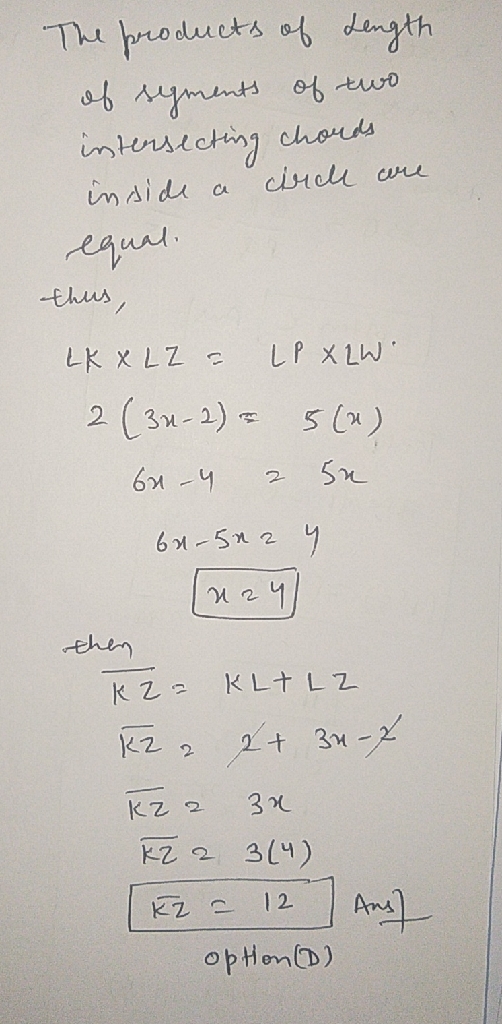 The products of length
of segments of two
intersecting chords
inside a circle are
equal.
thus,
LK X LZ = LP X LW
2 (3x-2) = 5(x)
6x - 4 = 5x
6x - 5x = 4
x = 4
then
K̅Z̅ = KL + LZ
K̅Z̅ = 2 + 3x - 2
K̅Z̅ = 3x
K̅Z̅ = 3(4)
K̅Z̅ = 12 Ans
option (D)